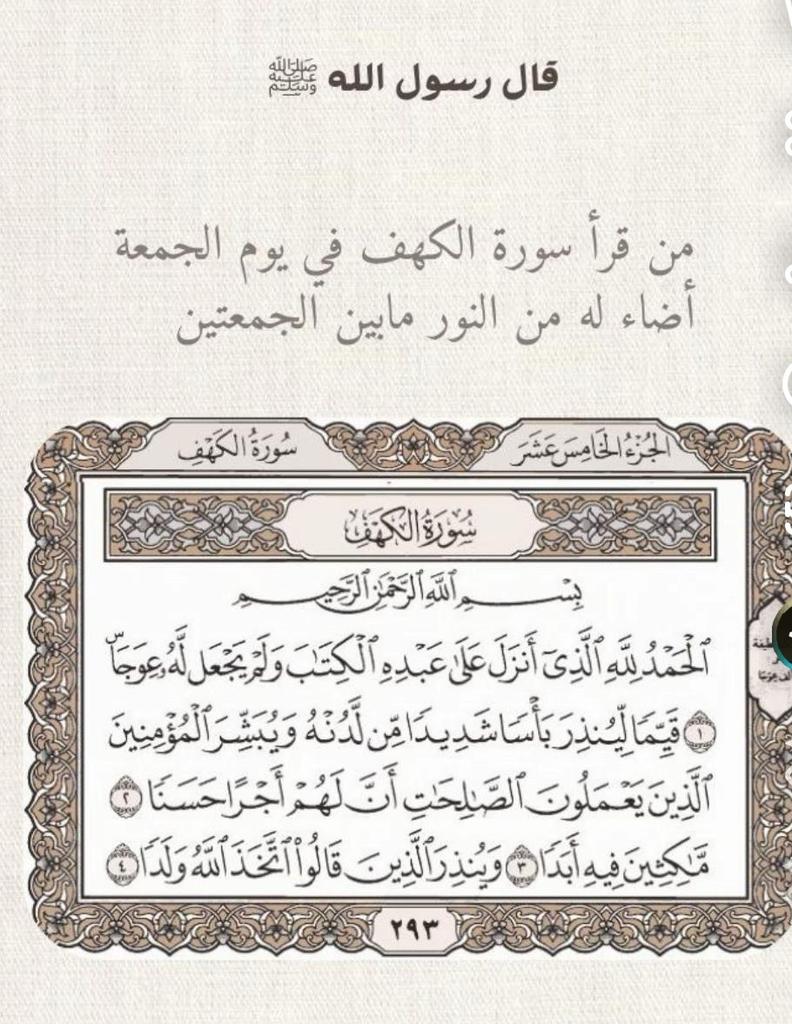 قال رسول الله ﷺ
من قرأ سورة الكهف في يوم الجمعة
أضاء له من النور مابين الجمعتين
الجُزْءُ الخَامِسَ عَشَرَ
سُورَةُ الكَهْفِ
سُورَةُ الكَهْفِ
بِسْمِ ٱللَّهِ ٱلرَّحْمَٰنِ ٱلرَّحِيمِ
ٱلْحَمْدُ لِلَّهِ ٱلَّذِىٓ أَنزَلَ عَلَىٰ عَبْدِهِ ٱلْكِتَٰبَ وَلَمْ يَجْعَل لَّهُۥ عِوَجَاۜ
١ قَيِّمًا لِّيُنذِرَ بَأْسًا شَدِيدًا مِّن لَّدُنْهُ وَيُبَشِّرَ ٱلْمُؤْمِنِينَ
ٱلَّذِينَ يَعْمَلُونَ ٱلصَّٰلِحَٰتِ أَنَّ لَهُمْ أَجْرًا حَسَنًا ٢
مَّٰكِثِينَ فِيهِ أَبَدًا ٣ وَيُنذِرَ ٱلَّذِينَ قَالُوا۟ ٱتَّخَذَ ٱللَّهُ وَلَدًا ٤
٢٩٣